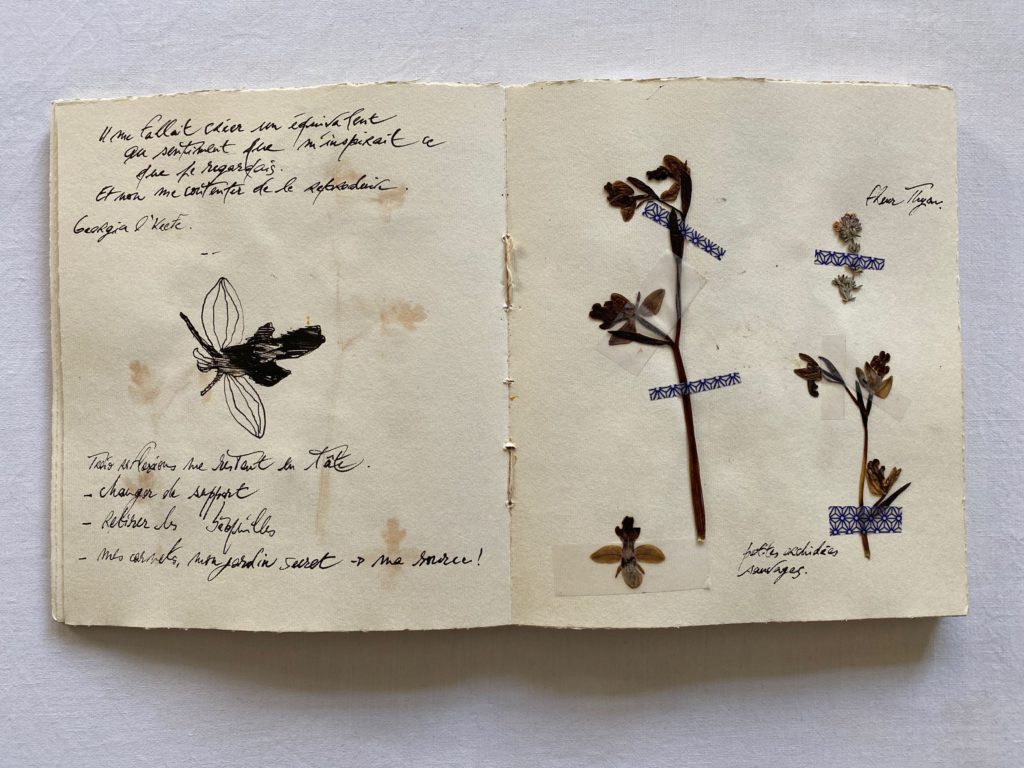 Il me fallait créer un équivalent
au sentiment que m'inspirait ce
que je regardais.
Et non me contenter de le reproduire.
Georgia O'Keefe.
Trois réflexions me restent en tête.
- changer de support
- Retirer les
- mes carnets, mon jardin secret → ma source!
fleur Thym.
petites orchidées
sauvages.